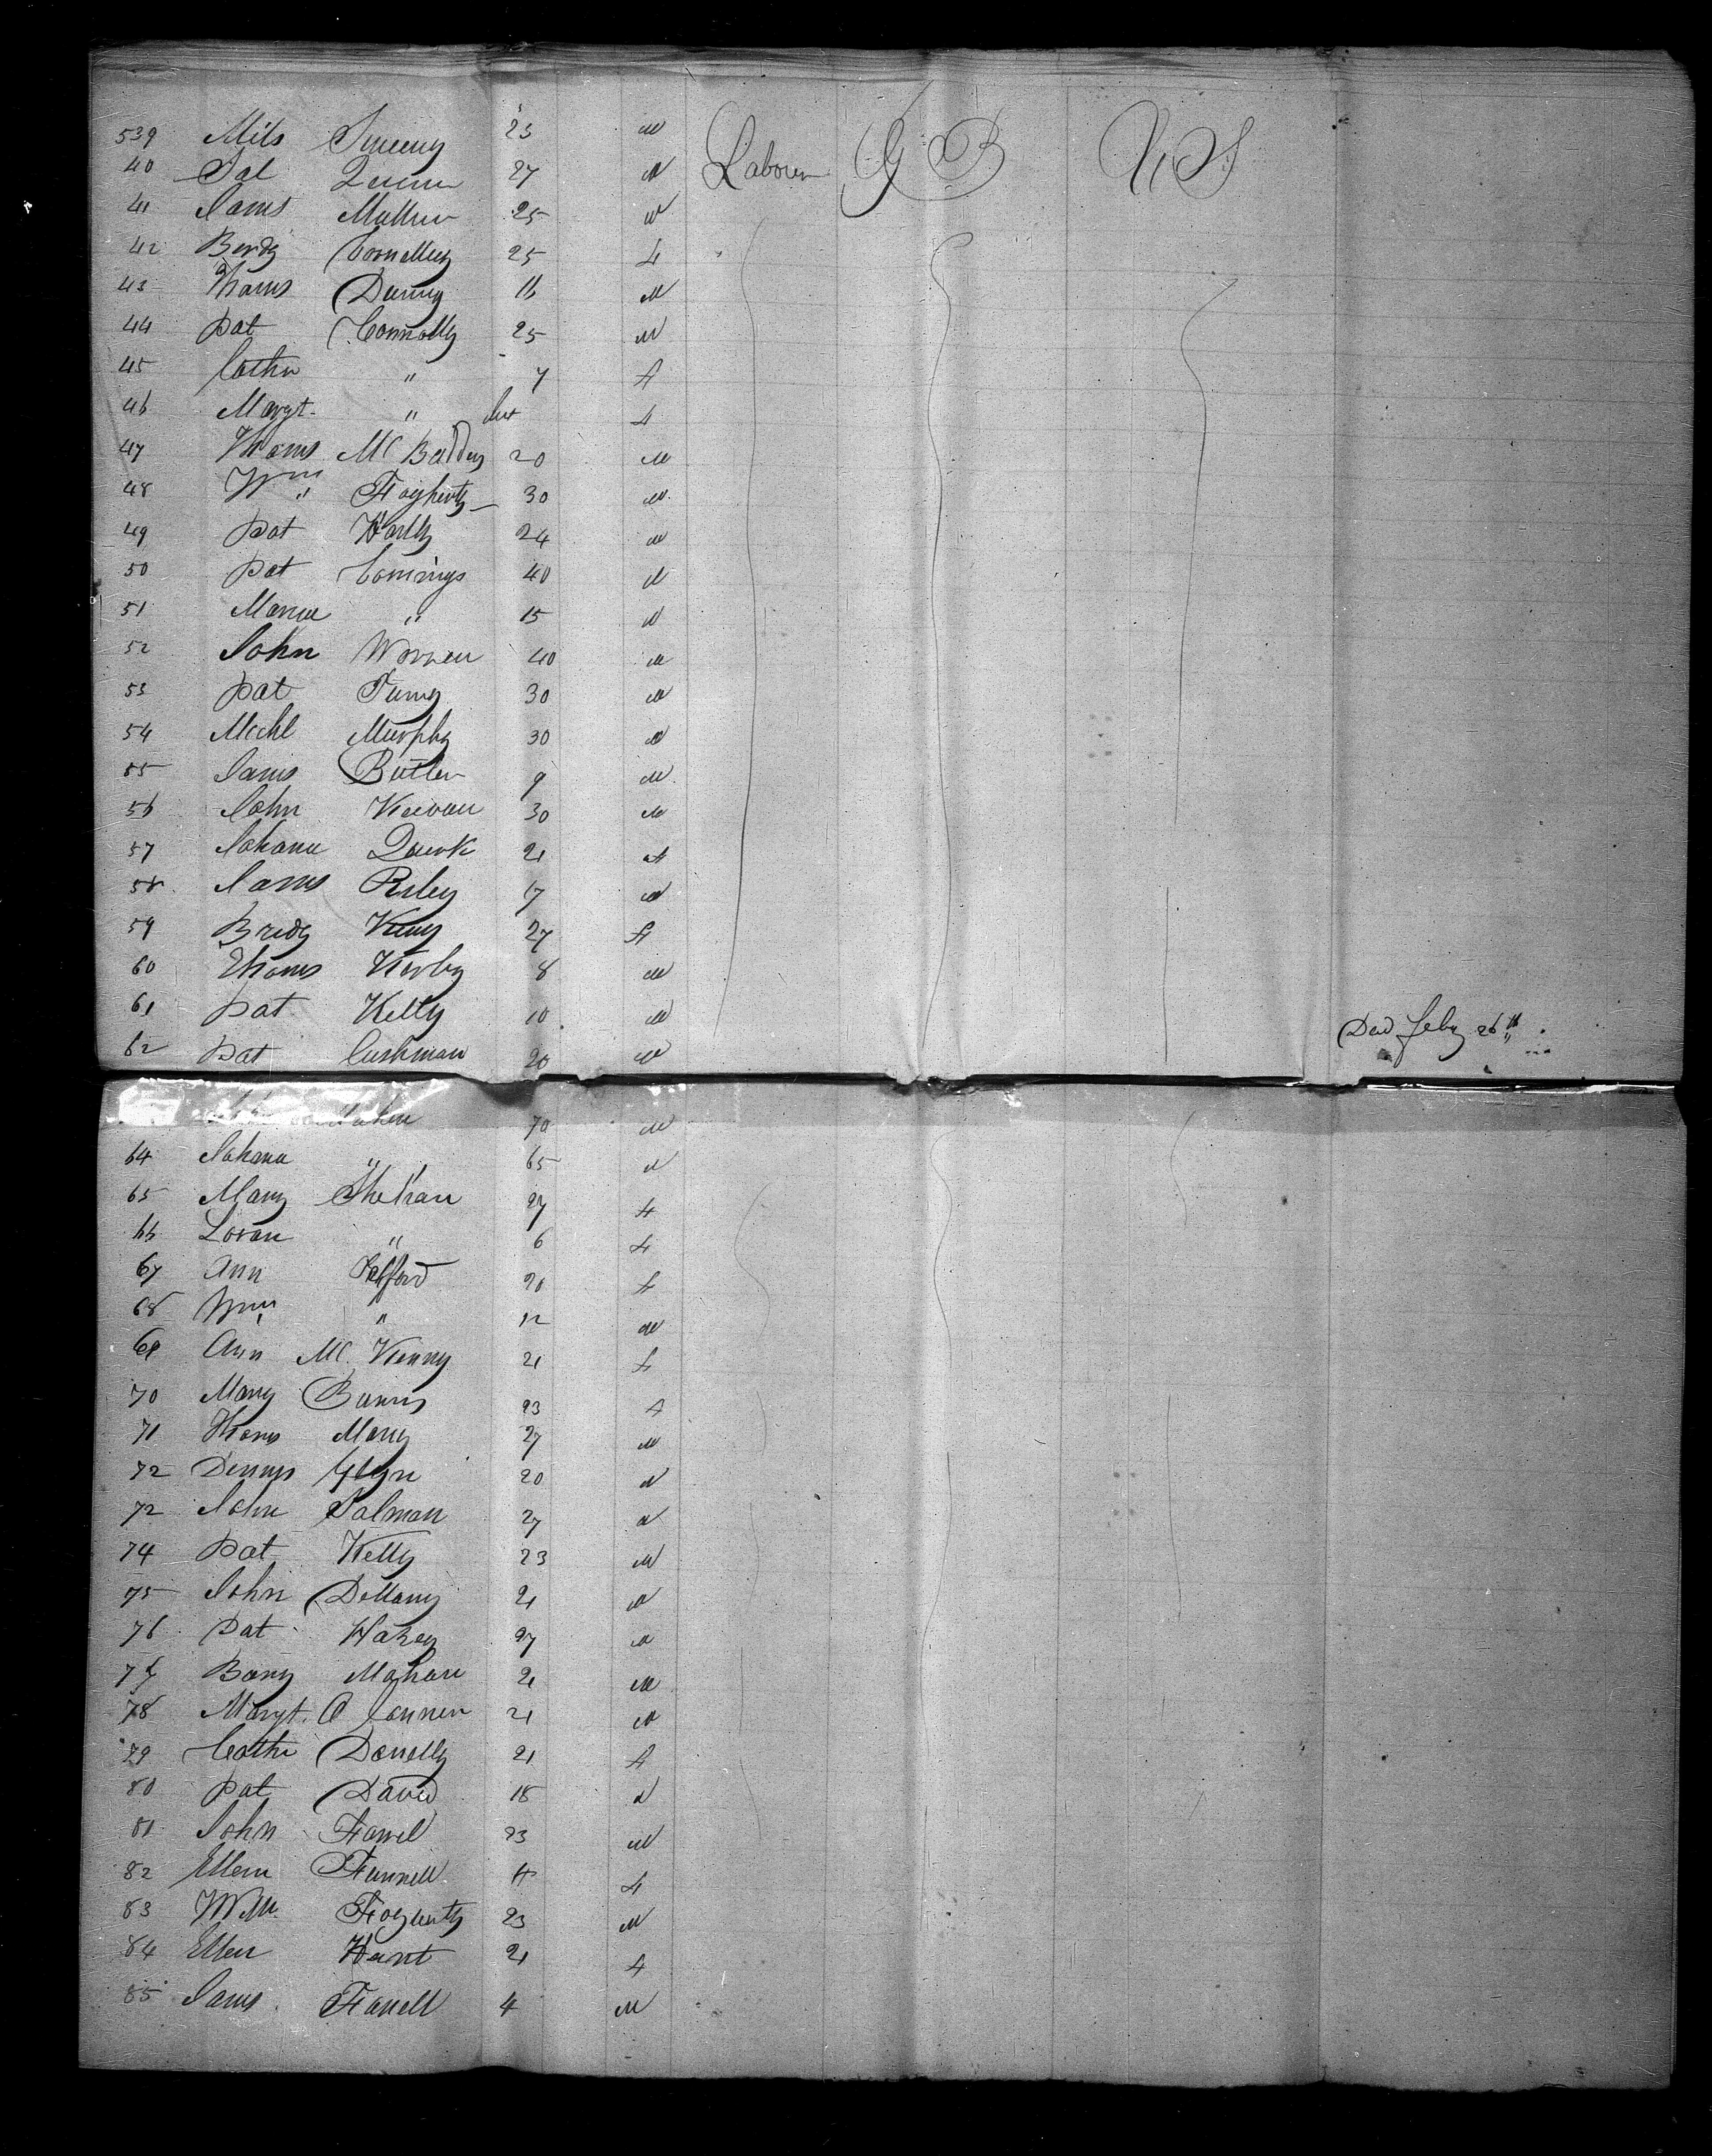 539 Mils Sweeny 23 M Laborer GB US
40 Pat 27 M
41 James Mathew 25 M
42 Bridg Cornelley 25 F
43 Thoms Danny 16 M
44 Pat Connolly 25 M
45 Cathn " 7 F
46 Margt. " Inf F
47 Thoms Mc Badden 20 M
48 Wm Fogherty 30 M
49 Pat 24 M
50 Pat Comings 40 M
51 Maria " 15 M
52 John Warren 40 M
53 Pat 30 M
54 Michl Murphy 30 M
55 James Butler 9 M
56 John Keevan 30 M
57 Johana Quirk 21 F
58 James Riley 17 M
59 Bridg 27 F
60 Thoms Kerby 8 M
61 Pat Kelly 10 M Ded Feby 26th
62 Pat Cushman 20 M
70 M
64 Johana " 65 M
65 Mary Shehan 27 F
66 Loran " 6 F
67 Ann 20 F
68 Wm " 12 M
69 Ann Mc. Kenny 21 F
70 Mary Burns 23 F
71 Thoms Mary 27 M
72 Dennis Glyn 20 M
72 John Salman 27 M
74 Pat Kelly 23 M
75 John Dellany 21 M
76 Pat 27 M
77 Barny Mahan 21 M
78 Margt. O Conner 21 M
79 Cathn Donelly 21 F
80 Pat David 18 M
81 John Farrell 23 M
82 Ellen Funnell 4 F
83 Wm. Fogherty 23 M
84 Ellen Hunt 21 F
85 James Farrell 4 M